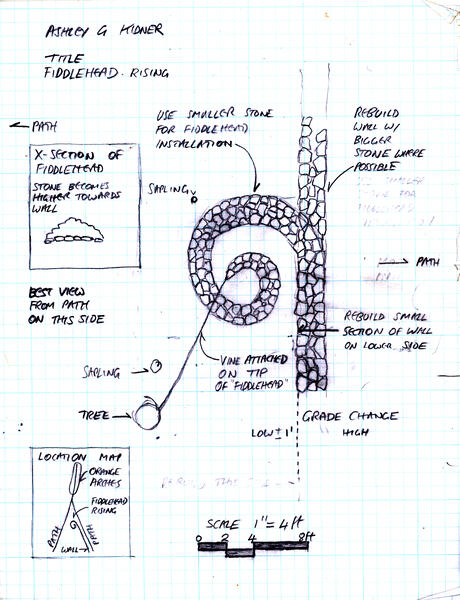 ASHLEY G KIDNER
TITLE
FIDDLEHEAD RISING
← PATH
X-SECTION OF
FIDDLEHEAD
STONE BECOMES
HIGHER TOWARDS
WALL
USE SMALLER STONE
FOR FIDDLEHEAD
INSTALLATION
REBUILD
WALL W/
BIGGER
STONE WHERE
POSSIBLE
SAPLING
→ PATH
BEST VIEW
FROM PATH
ON THIS SIDE
REBUILD SMALL
SECTION OF WALL
ON LOWER SIDE
SAPLING
VINE ATTACHED
ON TIP
OF "FIDDLEHEAD"
TREE
GRADE CHANGE
LOW ± 1'
HIGH
LOCATION MAP
ORANGE
ARCHES
FIDDLEHEAD
RISING
PATH
PATH
WALL
SCALE 1" = 4ft
0 2 4 8ft